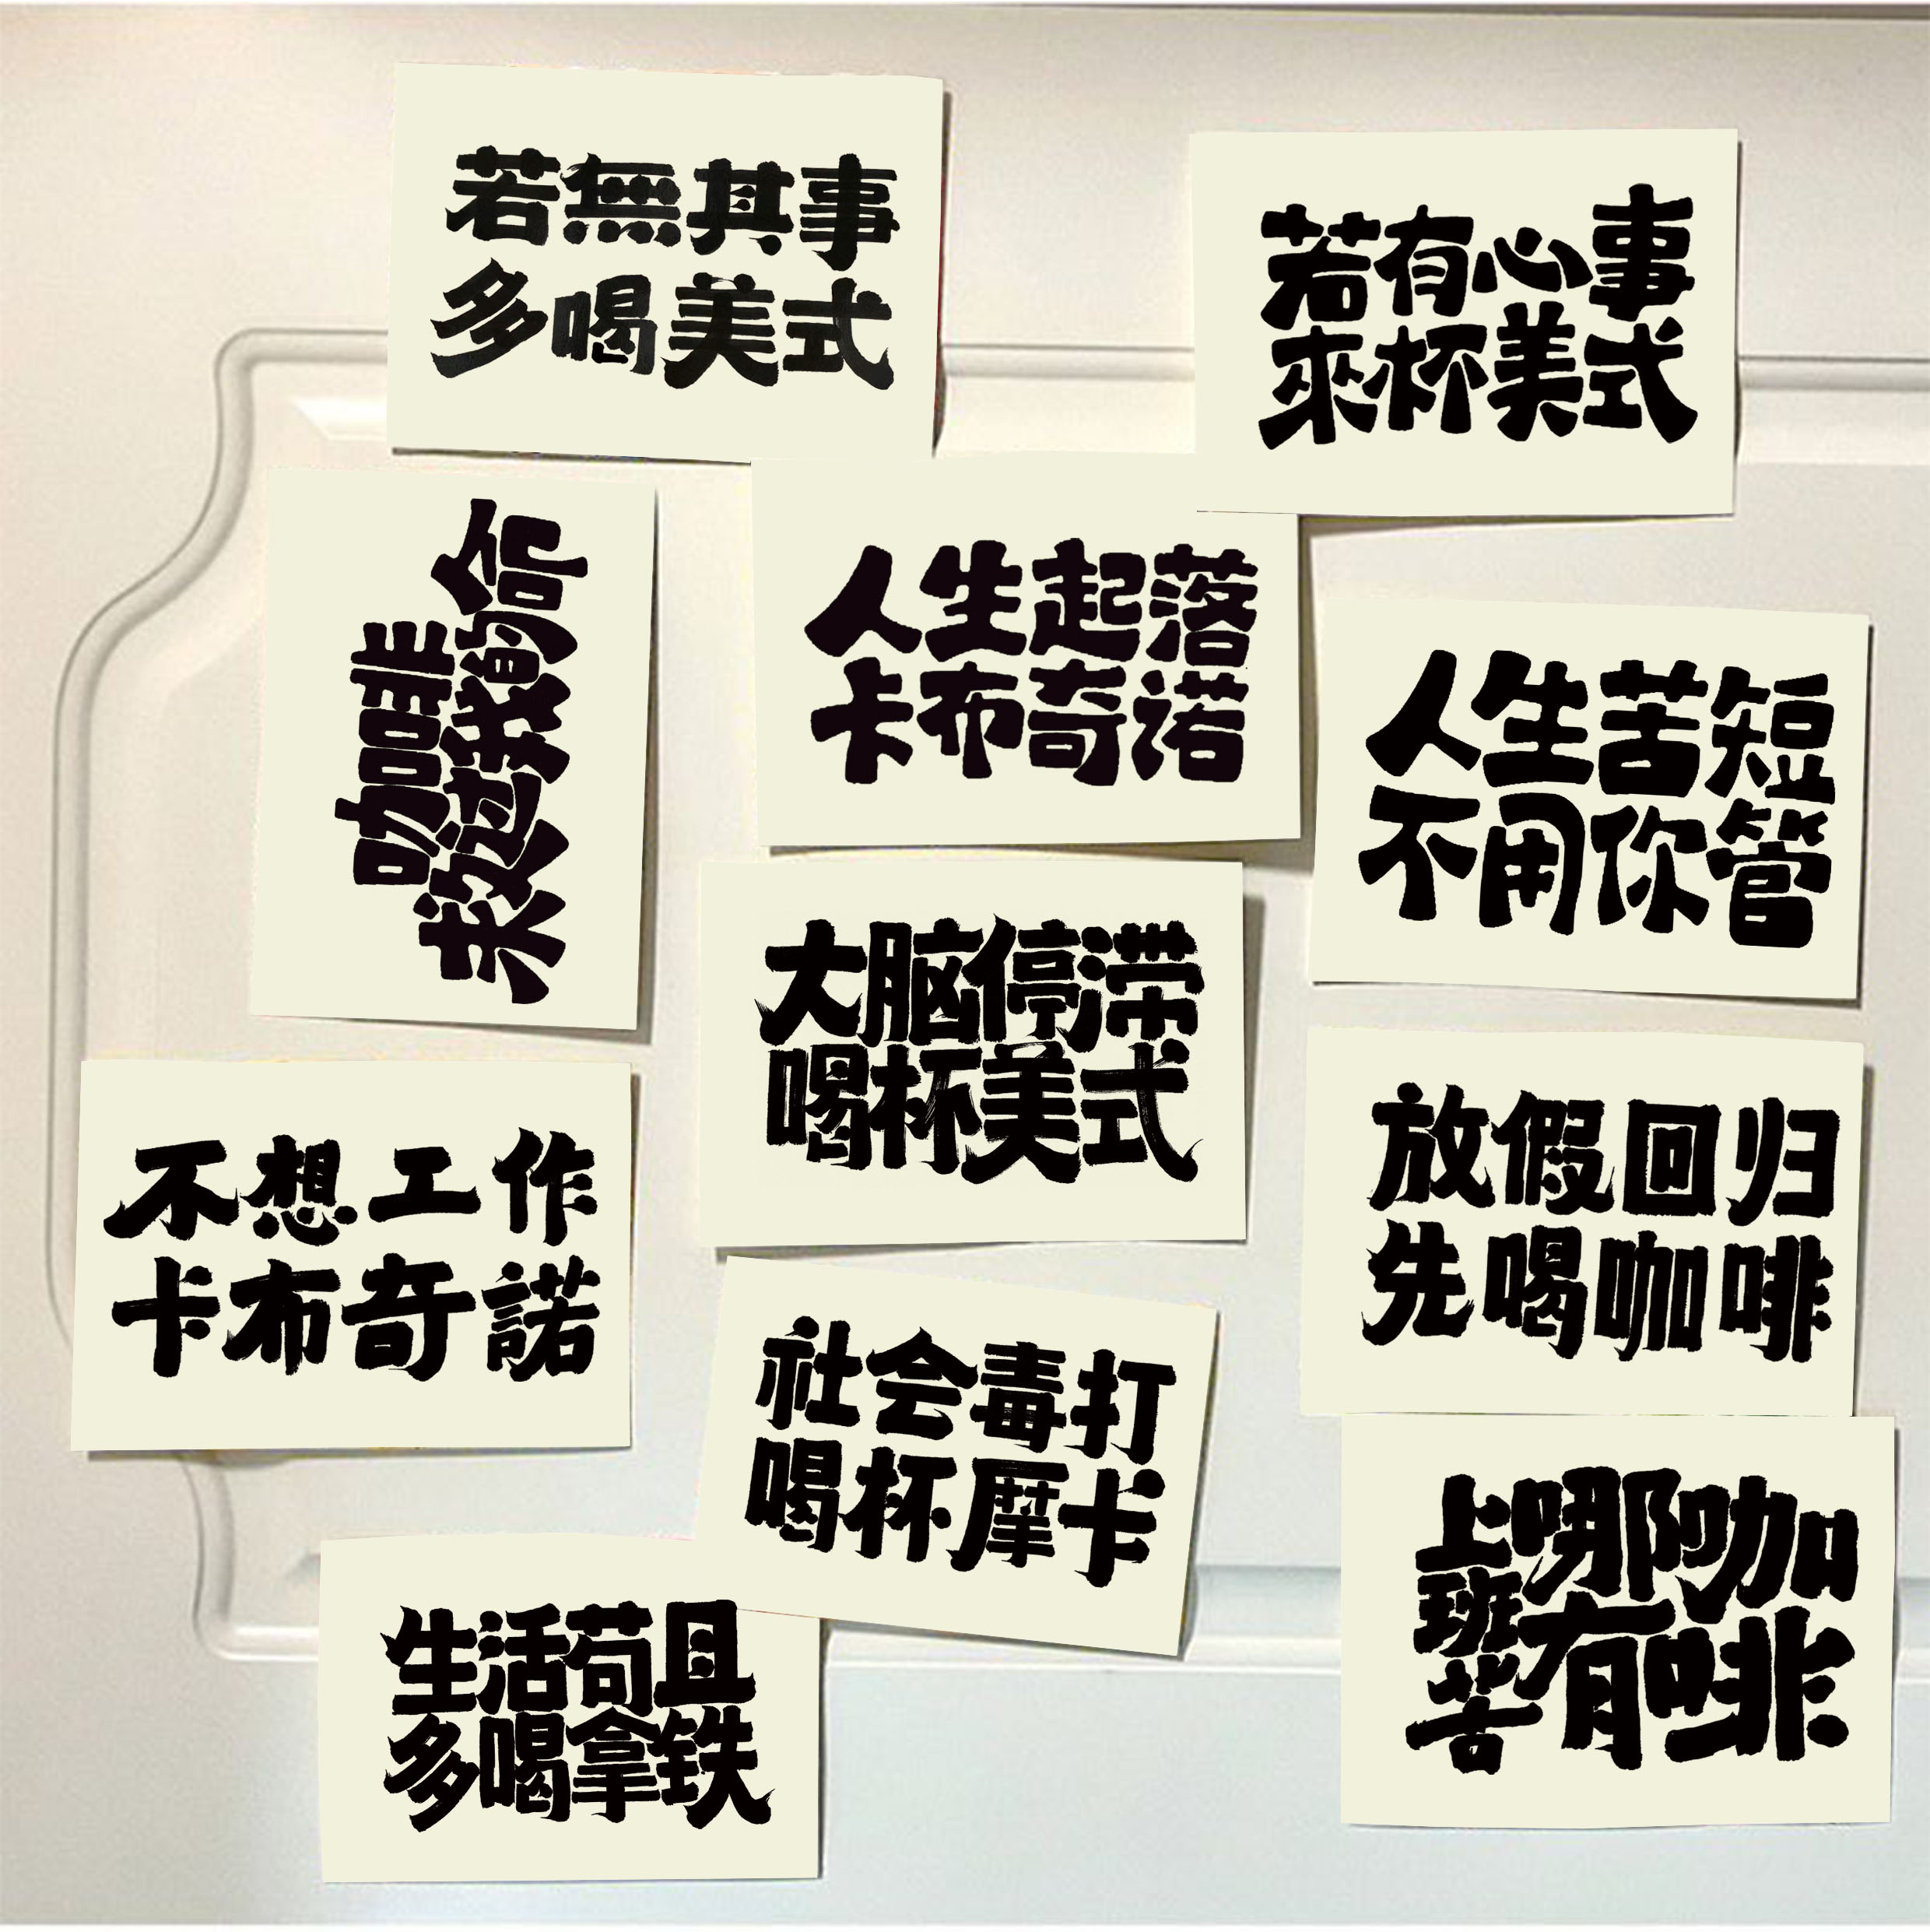 若無其事
多喝美式
若有心事
來杯美式
咖啡
救过我的命
人生起落
卡布奇诺
人生苦短
不用你管
大脑停滞
喝杯美式
不想工作
卡布奇諾
放假回归
先喝咖啡
社会毒打
喝杯摩卡
上班哪有咖啡苦
生活苟且
多喝拿铁